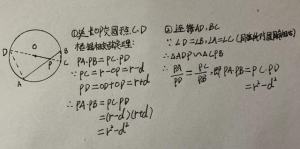 D
O
B
P
C
A
①延长OP交圆于C、D
根据相交弦定理:
PA·PB=PC·PD
∵PC=r-OP=r-d
PD=OD+OP=r+d
∴PA·PB=PC·PD
=(r-d)(r+d)
=r²-d²
②连接AD、BC
∵∠D=∠B,∠A=∠C
∴△ADP∽△CBP
∴PA/PD=PC/PB,即PA·PB=PC·PD
=r²-d²